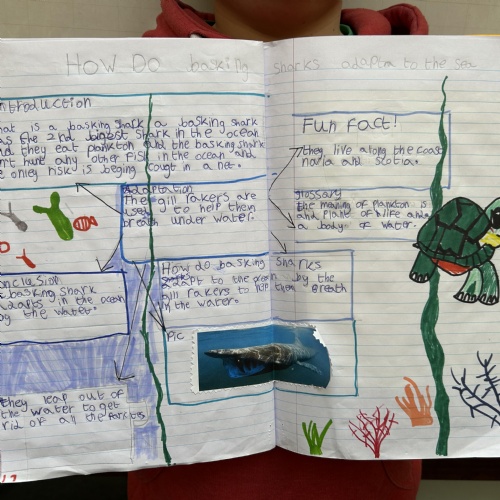 How Do basking sharks adapta to the sea
introduction
hat is a basking shark a basking shark
as the 2nd biggest shark in the ocean
nd they eat plankton and the basking shark
ont hunt any other fish in the ocean and
e only risk is beging cougt in a net.
Adaptation
The gill rakers are
used to help them
breath under water.
onclusion
basking shark
adapts in the ocean
by the water.
they leap out of
the water to get
rid of all the
How do basking sharks
adapt to the ocean by the
gill rakers to help them breath
in the water.
Pic
Fun fact!
they live along the coast
novia and scotia.
glossary
the meaning of plankton is
and plane of wife and
a body of water.